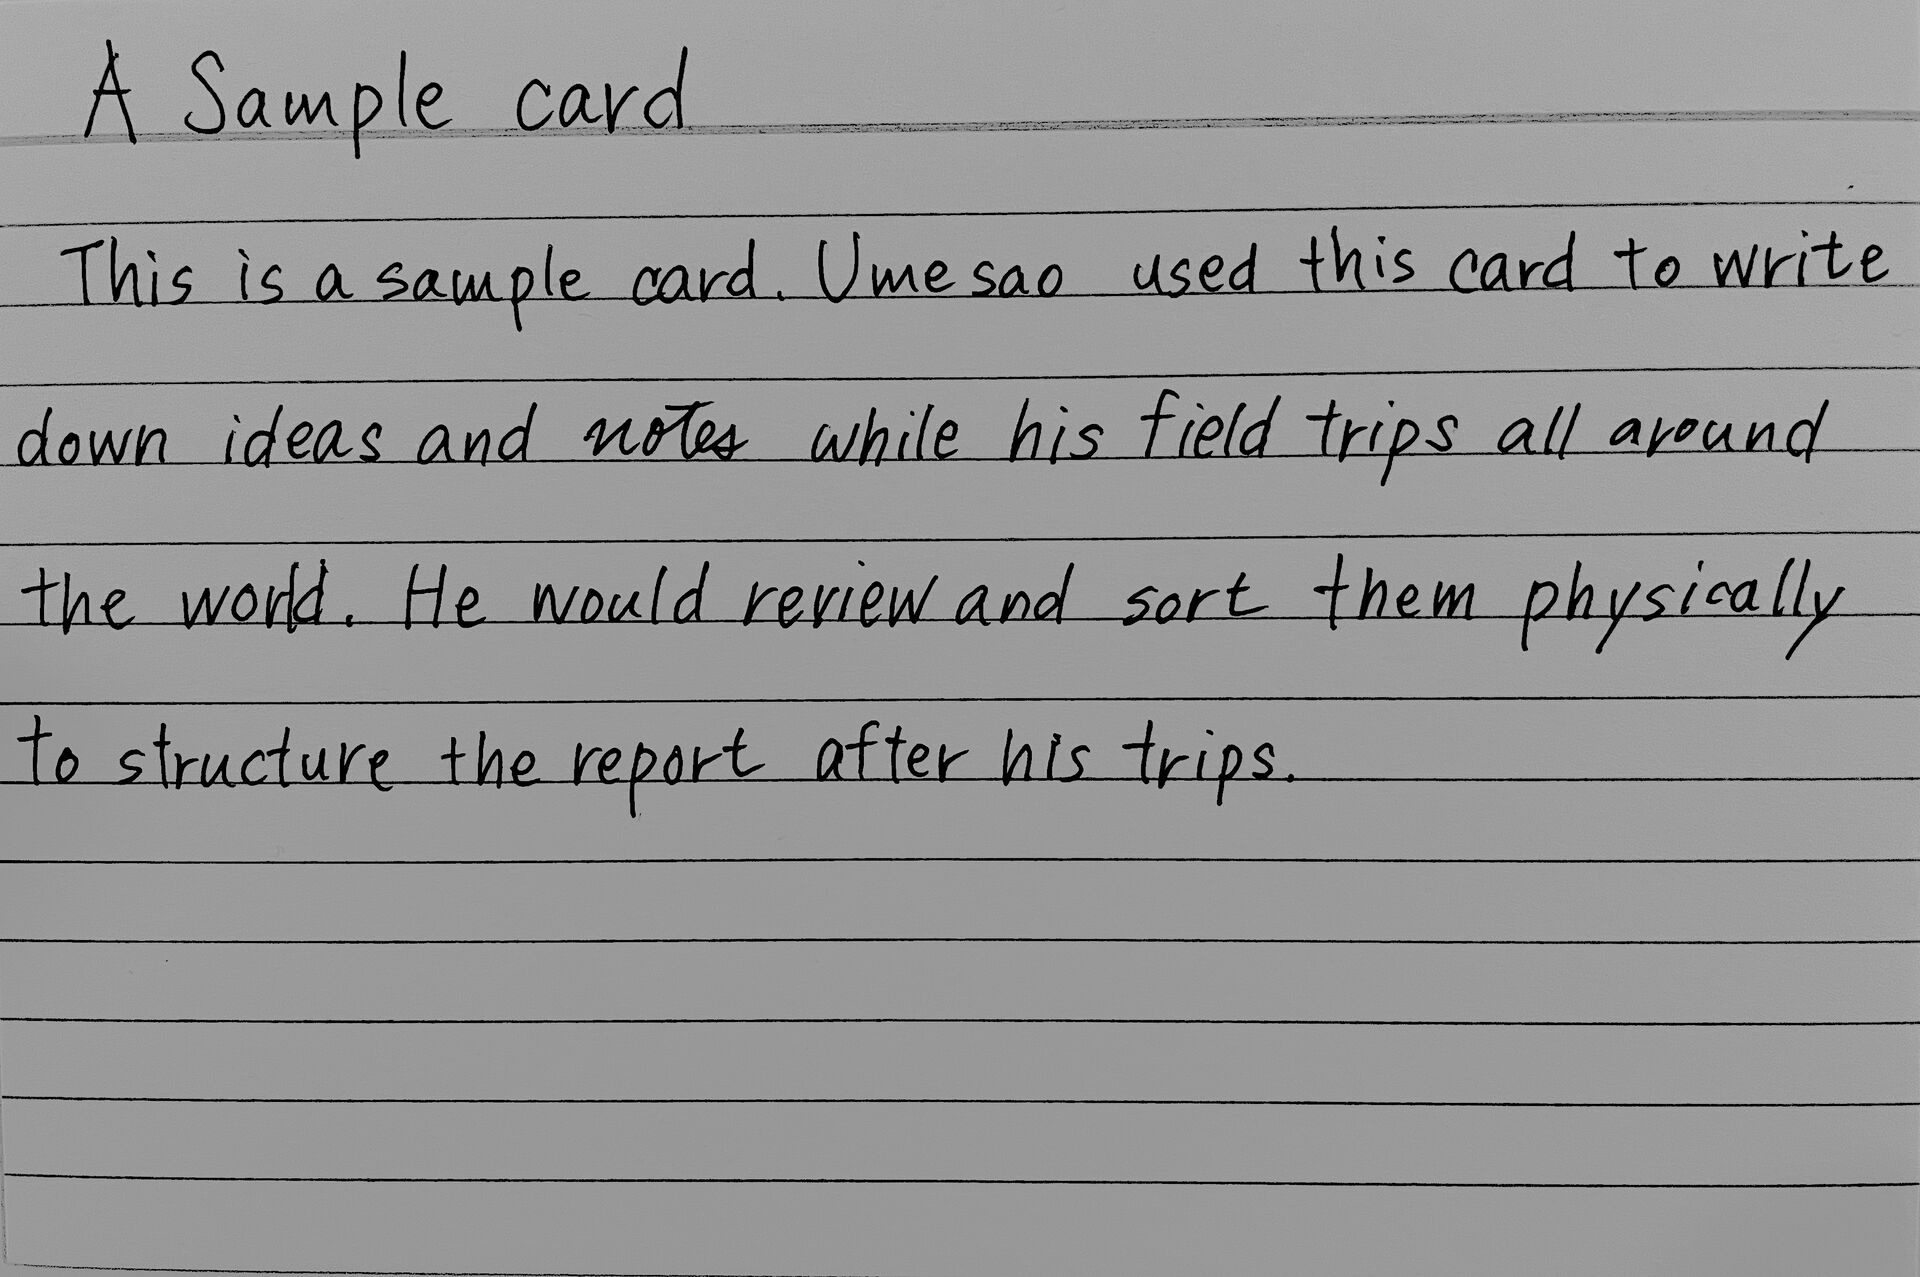 A Sample card
This is a sample card. Umesao used this card to write
down ideas and notes while his field trips all around
the world. He would review and sort them physically
to structure the report after his trips.